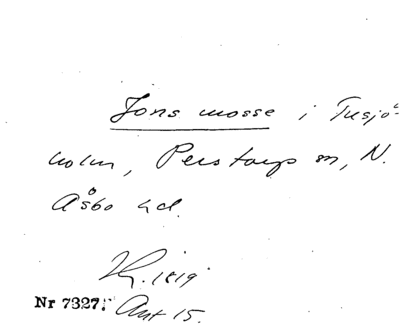 Jons mosse i Tusjö-
holm, Perstorps sn, N.
Åsbo hd.
1819
Nr 7327: Akt 15.